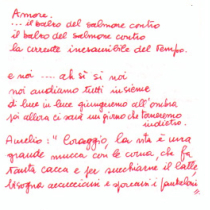 Amore.
... il balzo del salmone contro
il balzo del salmone contro
la corrente inesauribile del tempo.
e noi .... ah sì sì noi
noi andiamo tutti insieme
di luce in luce giungeremo all'ombra
poi allora ci sarà un giorno che torneremo
indietro.
Aurelio: " Coraggio, la vita è una
grande mucca con le corna, che fa
tanta cacca e per succhiarne il latte
bisogna accucciarsi e sporcarsi i pantaloni